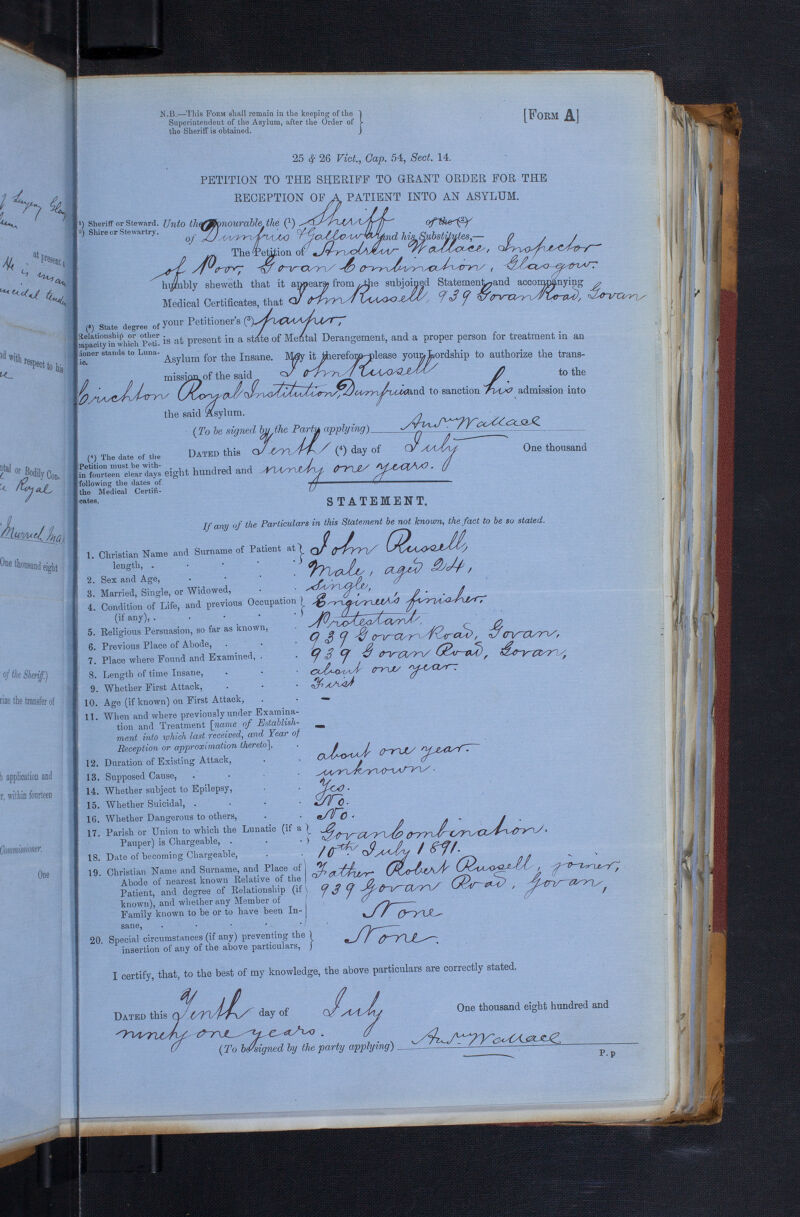 N.B.—This FORM shall remain in the keeping of the
Superintendent of the Asylum, after the Order of
the Sheriff is obtained.
[FORM A]
25 & 26 Vict., Cap. 54, Sect. 14.
PETITION TO THE SHERIFF TO GRANT ORDER FOR THE
RECEPTION OF A PATIENT INTO AN ASYLUM.
(1) Sheriff or Steward.
(2) Shire or Stewartry.
Unto the Honourable, the (1) Sheriff of the (2)
of Dumfries & Galloway and his Substitutes,—
The Petition of Andrew Wallace, Inspector
of Poor, Govan Combination, Glasgow.
humbly sheweth that it appears from the subjoined Statement, and accompanying
Medical Certificates, that John Russell, 939 Govan Road, Govan
(3) State degree of
Relationship or other
capacity in which Peti-
tioner stands to Luna-
tic.
your Petitioner's (3) pauper,
is at present in a state of Mental Derangement, and a proper person for treatment in an
Asylum for the Insane. May it therefore please your Lordship to authorize the trans-
mission of the said John Russell to the
Crichton Royal Institution, Dumfries and to sanction his admission into
the said Asylum.
(To be signed by the Party applying) Andw Wallace
(4) The date of the
Petition must be with-
in fourteen clear days
following the dates of
the Medical Certifi-
cates.
DATED this Tenth (4) day of July One thousand
eight hundred and ninety one years.
STATEMENT.
If any of the Particulars in this Statement be not known, the fact to be so stated.
1. Christian Name and Surname of Patient at
length, . John Russell,
2. Sex and Age, Male, aged 24,
3. Married, Single, or Widowed, Single,
4. Condition of Life, and previous Occupation
(if any), . Engineer's finisher.
5. Religious Persuasion, so far as known, Protestant.
6. Previous Place of Abode, 939 Govan Road, Govan,
7. Place where Found and Examined, 939 Govan Road, Govan,
8. Length of time Insane, about one year.
9. Whether First Attack, First
10. Age (if known) on First Attack, —
11. When and where previously under Examina-
tion and Treatment [name of Establish-
ment into which last received, and Year of
Reception or approximation thereto], —
12. Duration of Existing Attack, about one year.
13. Supposed Cause, unknown.
14. Whether subject to Epilepsy, Yes.
15. Whether Suicidal, No.
16. Whether Dangerous to others, No.
17. Parish or Union to which the Lunatic (if a
Pauper) is Chargeable, Govan Combination.
18. Date of becoming Chargeable, 10th July 1891.
19. Christian Name and Surname, and Place of
Abode of nearest known Relative of the
Patient, and degree of Relationship (if
known), and whether any Member of
Family known to be or to have been In-
sane, Father Robert Russell, joiner,
939 Govan Road, Govan,
None
20. Special circumstances (if any) preventing the
insertion of any of the above particulars, None.
I certify, that, to the best of my knowledge, the above particulars are correctly stated.
DATED this Tenth day of July One thousand eight hundred and
ninety one years.
(To be signed by the party applying) Andw Wallace
P. p